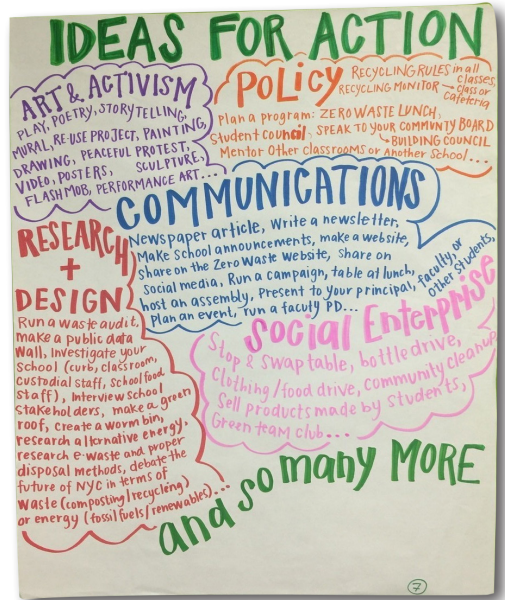 IDEAS FOR ACTION
ART & ACTIVISM
PLAY, POETRY, STORYTELLING,
MURAL, RE-USE PROJECT, PAINTING,
DRAWING, PEACEFUL PROTEST,
VIDEO, POSTERS, SCULPTURE,
FLASH MOB, PERFORMANCE ART...
POLICY
RECYCLING RULES in all classes,
RECYCLING MONITOR → class or cafeteria
Plan a program: ZERO WASTE LUNCH,
Student council, SPEAK TO YOUR COMMUNITY BOARD
↳ BUILDING COUNCIL
Mentor Other classrooms or Another School...
COMMUNICATIONS
Newspaper article, Write a newsletter,
Make School announcements, make a website,
share on the Zero Waste Website, Share on
Social media, Run a campaign, table at lunch,
host an assembly, Present to your principal, faculty, or other students,
Plan an event, run a faculty PD...
RESEARCH
+
DESIGN
Run a waste audit,
make a public data
Wall, Investigate your
School (curb, classroom,
custodial staff, School food
staff), Interview School
Stakeholders, make a green
roof, create a worm bin,
research alternative energy,
research e-waste and proper
disposal methods, debate the
future of NYC in terms of
Waste (composting/recycling)
or energy (fossil fuels/renewables)...
Social Enterprise
Stop & Swap table, bottle drive,
Clothing/food drive, community cleanup,
Sell products made by Students,
Green team club...
and so many MORE
7